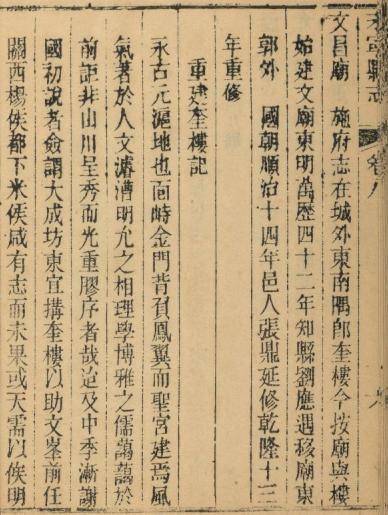 永寧縣志 卷八
文昌廟 施府志在城外東南隅即奎樓今按廟與樓
始建文廟東明萬歷四十二年知縣劉應遇移廟東
郭外 國朝順治十四年邑人張鼎延修乾隆十三
年重修
重建奎樓記
永古元滬地也面峙金門背負鳳翼而聖宮建焉風
氣著於人文濬漕明允之相理學博雅之儒藹藹於
前詎非山川呈秀而光重膠序者哉迨及中季漸謝
國初說者僉謂大成坊東宜搆奎樓以助文峯前任
關西楊侯都下米侯咸有志而未果或天需以俟明